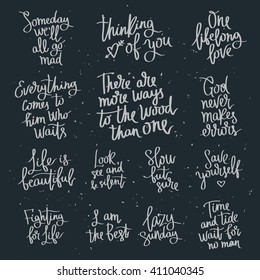 Someday
we'll
all go
mad
thinking
of you
One
lifelong
love
Everything
comes to
him who
waits
There are
more ways
to the wood
than one
God
never
makes
errors
Life is
beautiful
Look
see and &
silent
Slow
but
sure
Save
yourself
Fighting
for life
I am
the best
Lazy
Sunday
Time
and tide
wait for
no man
shutterstock
IMAGE ID: 411040345
www.shutterstock.com